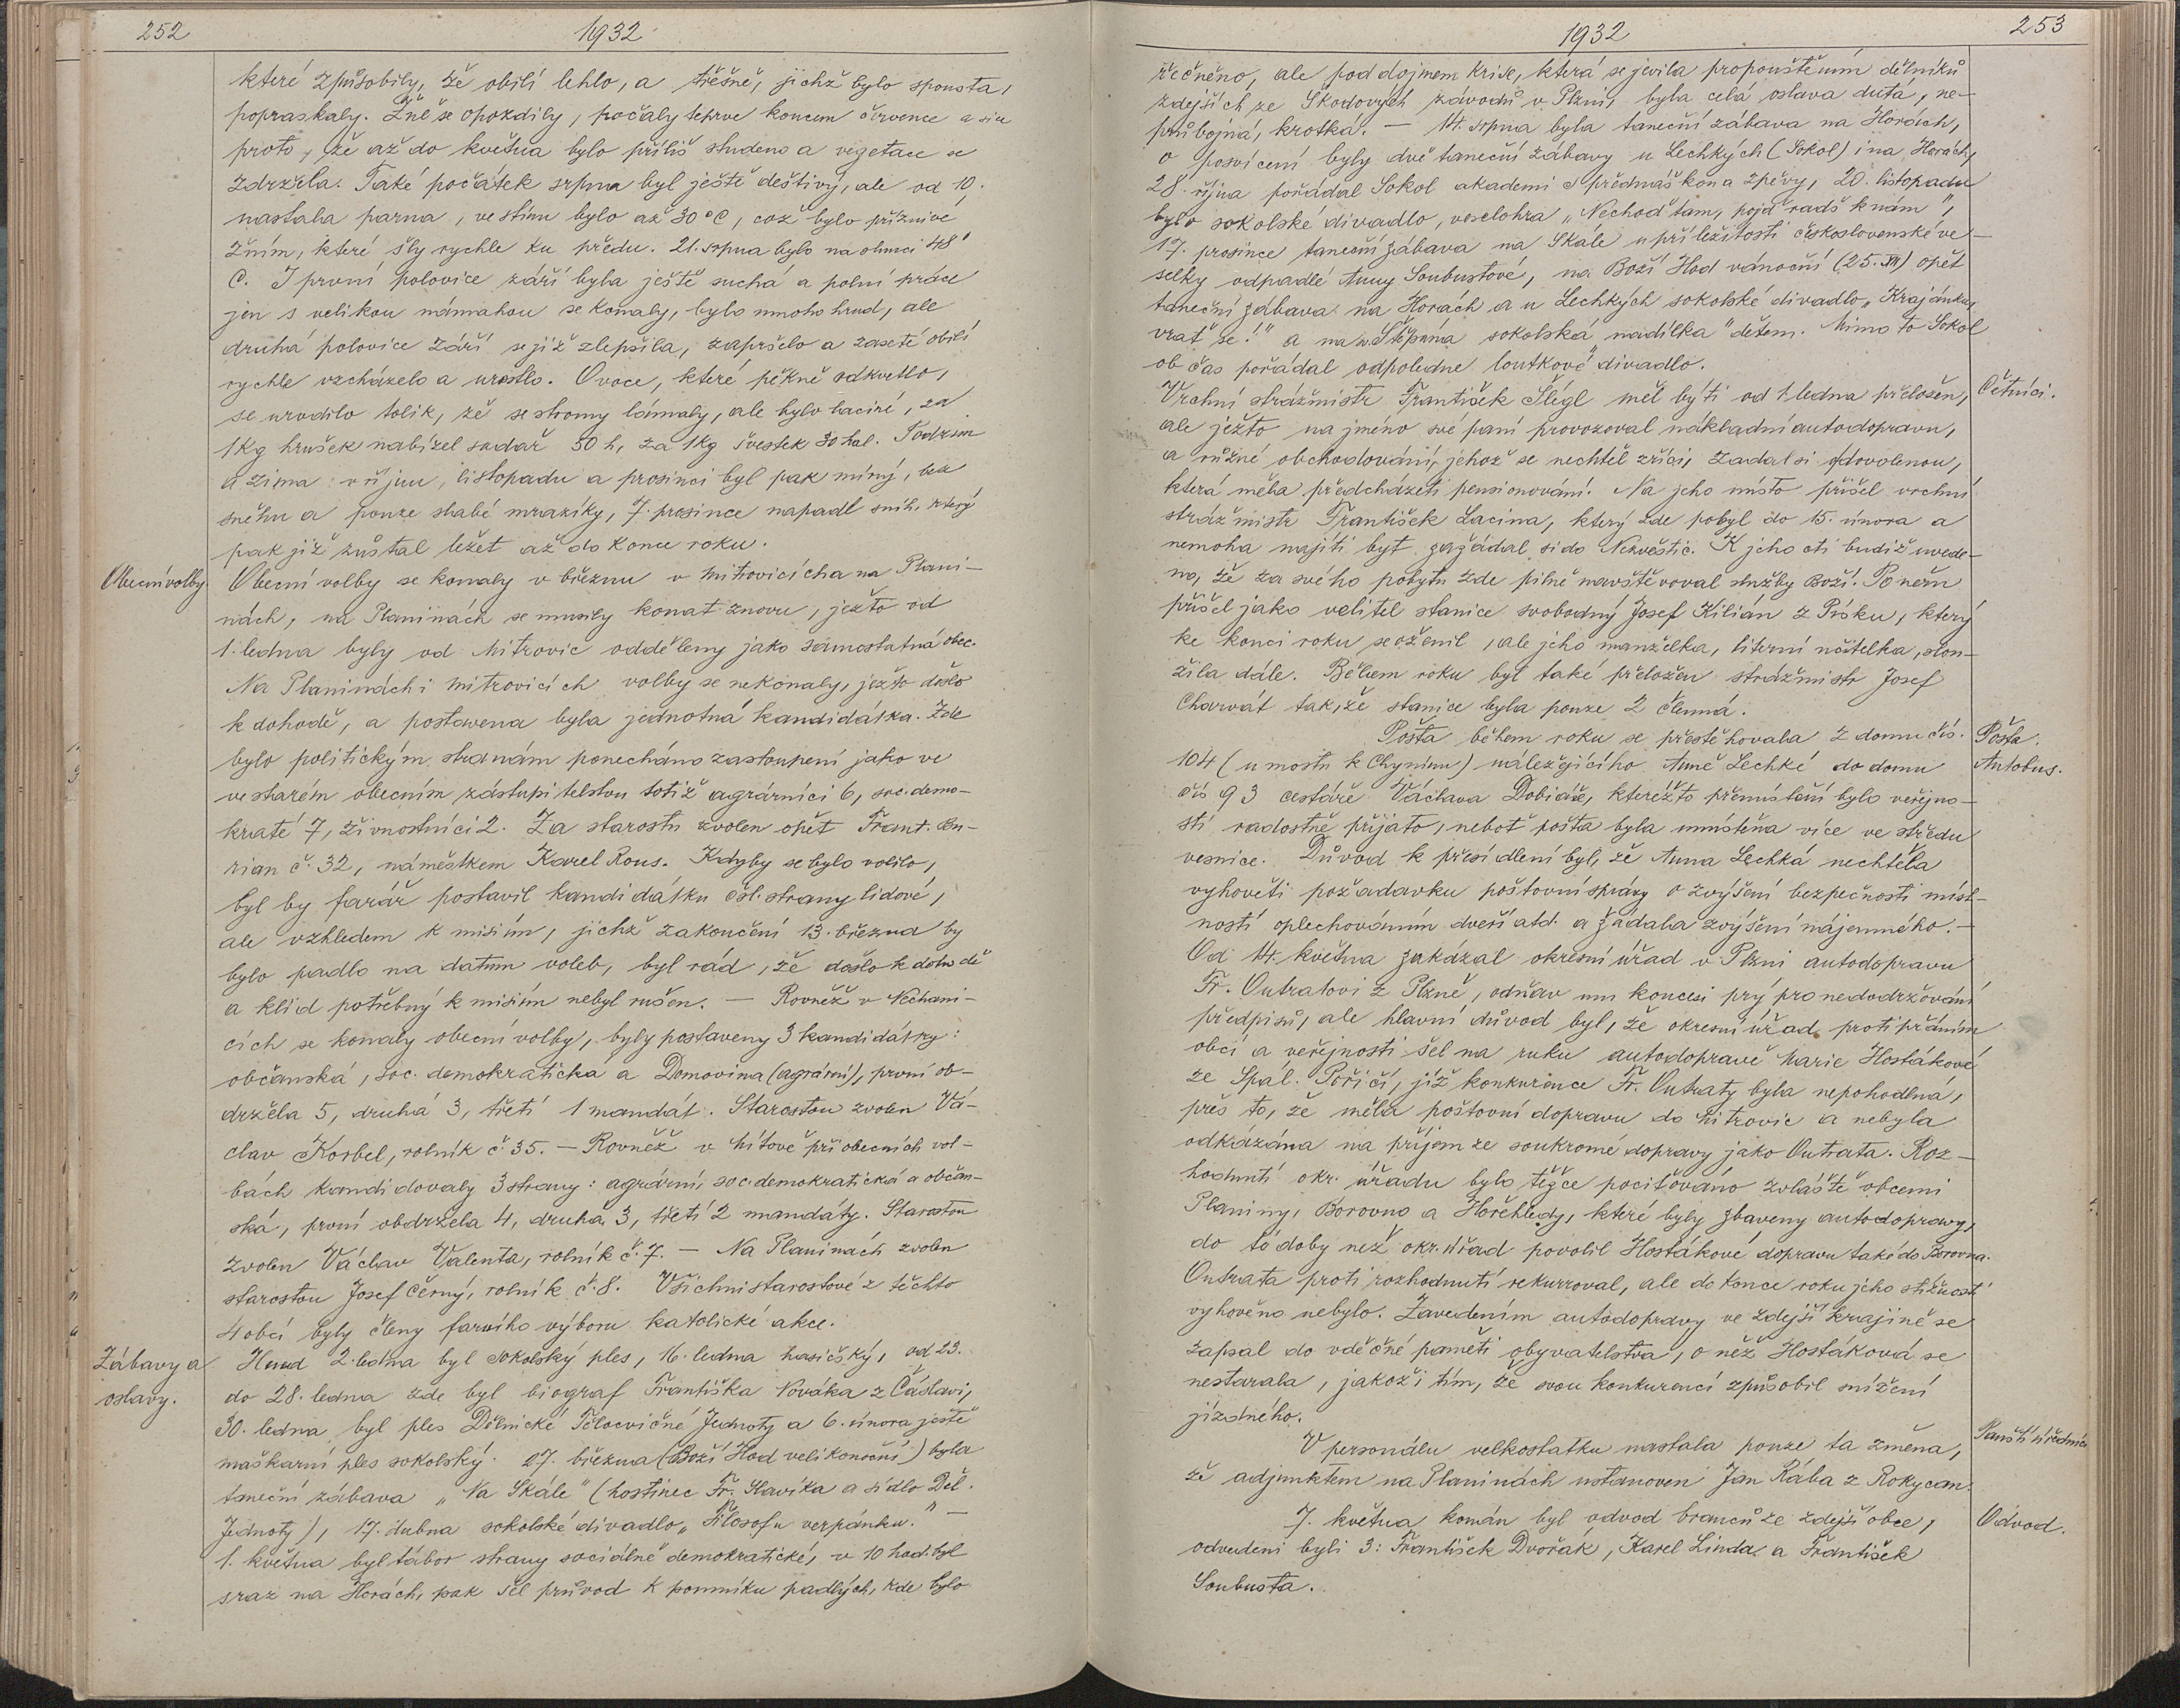 252
1932
které způsobily, že obilí lehlo, a třešně, jichž bylo spousta,
popraskaly. Žně se opozdily, počaly teprve koncem července a sice
proto, že až do května bylo příliš studeno a vegetace se
zdržela. Také počátek srpna byl ještě deštivý, ale od 10.
nastala parna, ve stínu bylo až 30°C, což bylo příznivé
žním, které šly rychle ku předu. 21. srpna bylo na slunci 48°
C. I první polovice září byla ještě suchá a polní práce
jen s velikou námahou se konaly, bylo mnoho hrud, ale
druhá polovice září se již zlepšila, zapršelo a zaseté obilí
rychle vzcházelo a urostlo. Ovoce, které pěkně odkvetlo,
se urodilo tolik, že se stromy lámaly, ale bylo laciné, za
1kg hrušek nabízel sadař 50 h, za 1kg švestek 30 hal. Podzim
a zima: v říjnu, listopadu a prosinci byl pak mírný, bez
sněhu a pouze slabé mrazíky, 7. prosince napadl sníh, který
pak již zůstal ležet až do konce roku.
Obecní volby.
Obecní volby se konaly v březnu v Mitrovicích a na Plani-
nách, na Planinách se musily konat znovu, ježto od
1. ledna byly od Mitrovic odděleny jako samostatná obec.
Na Planinách i Mitrovicích volby se nekonaly, ježto došlo
k dohodě, a postavena byla jednotná kandidátka. Zde
bylo politickým stranám ponecháno zastoupení jako ve
ve starém obecním zástupitelstvu totiž agrárníci 6, soc. demo-
kraté 7, živnostníci 2. Za starostu zvolen opět Frant. Cen-
rian č. 32, náměstkem Karel Rous. Kdyby se bylo volilo,
byl by farář postavil kandidátku čsl. strany lidové,
ale vzhledem k misiím, jichž zakončení 13. března by
bylo padlo na datum voleb, byl rád, že došlo k dohodě
a klid potřebný k misiím nebyl rušen. — Rovněž v Nechani-
cích se konaly obecní volby, byly postaveny 3 kandidátky:
občanská, soc. demokratická a Domovina (agrární), první ob-
držela 5, druhá 3, třetí 1 mandát. Starostou zvolen Vá-
clav Korbel, rolník č 35. — Rovněž v Mítově při obecních vol-
bách kandidovaly 3 strany: agrární, soc. demokratická a občan-
ská, první obdržela 4, druhá 3, třetí 2 mandáty. Starostou
zvolen Václav Valenta, rolník č. 7. — Na Planinách zvolen
starostou Josef Černý, rolník č. 8. Všichni starostové z těchto
4 obcí byly členy farního výboru katolické akce.
Zábavy a
oslavy.
Hned 2. ledna byl sokolský ples, 16. ledna hasičský, od 23.
do 28. ledna zde byl biograf Františka Nováka z Čáslavi,
30. ledna byl ples Dělnické Tělocvičné Jednoty a 6. února ještě
maškarní ples sokolský. 27. března (Boží Hod velikonoční) byla
taneční zábava „Na Skále" (hostinec Fr. Slavíka a sídlo Děl.
Jednoty), 17. dubna sokolské divadlo „Filosofu verpánku." —
1. května byl tábor strany sociálně demokratické, v 10 hod. byl
sraz na Horách, pak šel průvod k pomníku padlých, kde bylo
1932
253
řečněno, ale pod dojmem krise, která se jevila propouštěním dělníků
zdejších ze Škodových závodů v Plzni, byla celá oslava dutá, ne-
průbojná, krotká. — 14. srpna byla taneční zábava na Horách,
o posvícení byly dvě taneční zábavy u Lechkých (Sokol) i na Horách,
28. října pořádal Sokol akademi s přednáškou a zpěvy, 20. listopadu
bylo sokolské divadlo, veselohra „Nechoď tam, pojď radš k nám",
17. prosince taneční zábava na Skále u příležitosti československé ve-
selky odpadlé Anny Soubustové, na Boží Hod vánoční (25. XII) opět
taneční zábava na Horách a u Lechkých sokolské divadlo „Krajánku,
vrať se!" a na sv. Štěpána sokolská „nadílka" dětem. Mimo to Sokol
ob čas pořádal odpoledne loutkové divadlo.
Četníci.
Vrchní strážmistr František Šlégl měl býti od 1. ledna přeložen,
ale ježto na jméno své paní provozoval nákladní autodopravu,
a různé obchodování, jehož se nechtěl zříci, zadal si o dovolenou,
která měla předcházeti pensionování. Na jeho místo přišel vrchní
strážmistr František Lacina, který zde pobyl do 15. února a
nemoha najíti byt zažádal si do Nezvěstic. K jeho cti budiž uvede-
no, že za svého pobytu zde pilně navštěvoval služby Boží. Po něm
přišel jako velitel stanice svobodný Josef Kilián z Písku, který
ke konci roku se oženil, ale jeho manželka, literní učitelka, slou-
žila dále. Během roku byl také přeložen strážmistr Josef
Charvát takže stanice byla pouze 2 členná.
Pošta.
Autobus.
Pošta během roku se přestěhovala z domu čís.
104 (u mostu k Chynínu) náležejícího Anně Lechké do domu
čís 93 cestáře Václava Dobiáše, kteréžto přemístění bylo veřejno-
stí radostně přijato, neboť pošta byla umístěna více ve středu
vesnice. Důvod k přesídlení byl, že Anna Lechká nechtěla
vyhověti požadavku poštovní správy o zvýšení bezpečnosti míst-
ností oplechováním dveří atd. a žádala zvýšení nájemného. —
Od 14. května zakázal okresní úřad v Plzni autodopravu
Fr. Outratovi z Plzně, odňav mu koncesi prý pro nedodržování
předpisů, ale hlavní důvod byl, že okresní úřad proti přáním
obcí a veřejnosti šel na ruku autodopravě Marie Hostákové
ze Spál. Poříčí, jíž konkurence Fr. Outraty byla nepohodlná,
přes to, že měla poštovní dopravu do Mitrovic a nebyla
odkázána na příjem ze soukromé dopravy jako Outrata. Roz-
hodnutí okr. úřadu bylo těžce pociťováno zvláště obcemi
Planiny, Borovno a Hořehledy, které byly zbaveny autodopravy,
do té doby než okr. úřad povolil Hostákové dopravu také do Borovna.
Outrata proti rozhodnutí rekurroval, ale do konce roku jeho stížnosti
vyhověno nebylo. Zavedením autodopravy ve zdejší krajině se
zapsal do vděčné paměti obyvatelstva, o něž Hostáková se
nestarala, jakož i tím, že svou konkurencí způsobil snížení
jízdného.
Panští úředníci
V personálu velkostatku nastala pouze ta změna,
že adjunktem na Planinách ustanoven Jan Rába z Rokycan.
Odvod.
7. května konán byl odvod branců ze zdejší obce,
odvedeni byli 3: František Dvořák, Karel Linda a František
Soubusta.